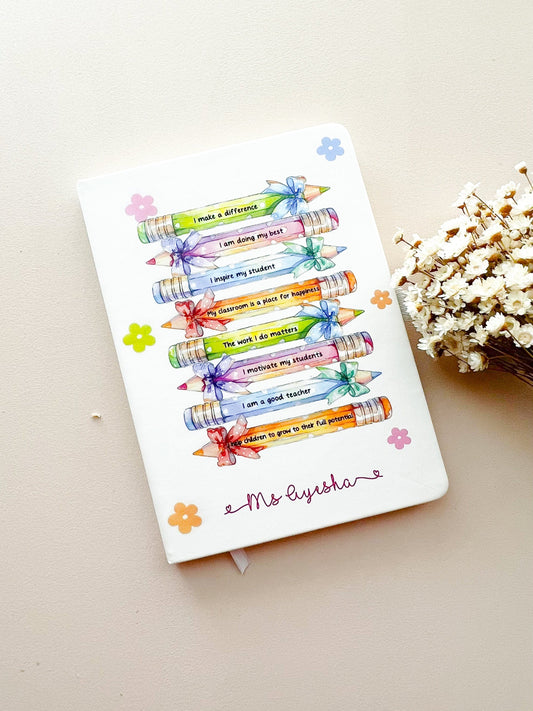 I make a difference
I am doing my best
I inspire my student
My classroom is a place for happiness
The work I do matters
I motivate my students
I am a good teacher
help children to grow to their full potential
Ms Ayesha